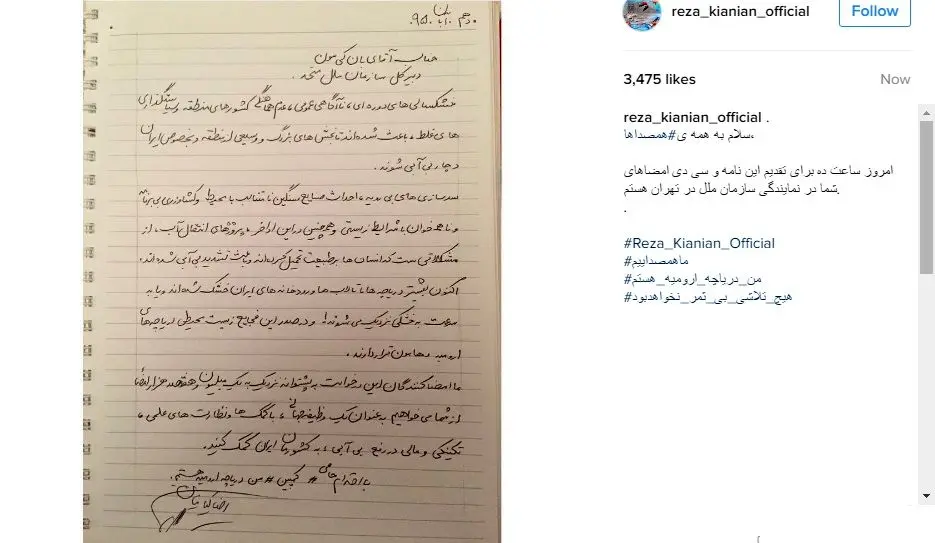 دهم آبان ۹۵
جناب آقای بان کی مون
دبیر کل سازمان ملل متحد.
خشکسالی های دوره ای، ناآگاهی عمومی، عدم هماهنگی کشورهای منطقه و سیاستگذاری
های غلط، باعث شده اند تا بخش های بزرگ و وسیعی از منطقه و بخصوص ایران
دچار بی آبی شوند.
سدسازی های بی رویه، احداث صنایع سنگین نامتناسب با محیط و کشاورزی بی برنامه
و ناهمخوان با شرایط زیستی و همچنین در این اواخر، پروژه های انتقال آب، از
مشکلاتی ست که انسان ها بر طبیعت تحمیل کرده اند و باعث تشدید بی آبی شده اند.
اکنون بیشتر دریاچه ها، تالاب ها و رودخانه های ایران خشک شده اند و یا به
سرعت به خشکی نزدیک می شوند! و در صدر این فجایع زیست محیطی دریاچه های
ارومیه و هامون قرار دارند.
ما امضا کنندگان این درخواست به پشتوانه نزدیک به یک میلیون و هفتصد هزار امضا
از شما می خواهیم به عنوان یک وظیفه جهانی، با کمک ها و نظارت های علمی،
تکنیکی و مالی در رفع بی آبی، به کشورمان ایران کمک کنید.
با احترام حامی # کمپین # من دریاچه ارومیه هستم.
رضا کیانیان
reza_kianian_official
Follow
3,475 likes
Now
reza_kianian_official .
سلام به همه ی#همصداها،
امروز ساعت ده برای تقدیم این نامه و سی دی امضاهای
شما در نمایندگی سازمان ملل در تهران هستم.
.
#Reza_Kianian_Official
#ماهمصداییم
#من_دریاچه_ارومیه_هستم
#هیچ_تلاشی_بی_ثمر_نخواهدبود